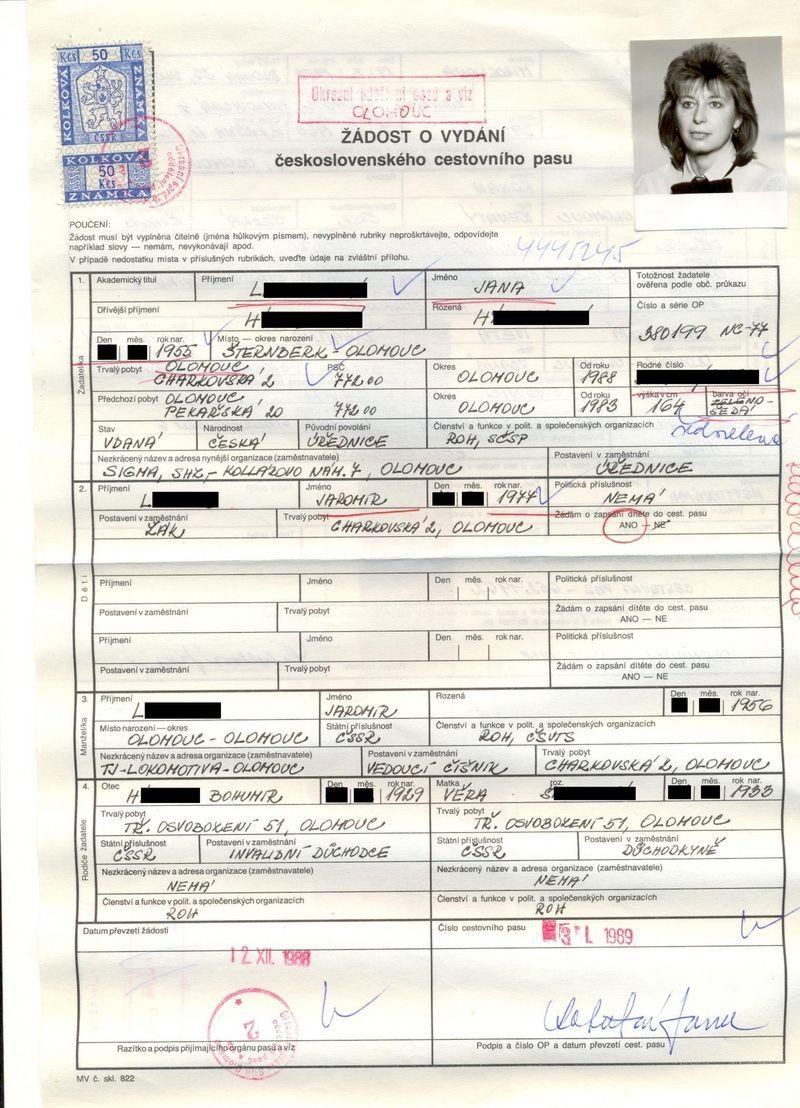 Kčs 50 Kčs
KOLKOVÁ
ZNÁMKA
ČSSR
KOLKOVÁ
50
Kčs
ČSSR
ZNÁMKA
Okresní oddělení pasů a víz
OLOMOUC
ŽÁDOST O VYDÁNÍ
československého cestovního pasu
POUČENÍ:
Žádost musí být vyplněna čitelně (jména hůlkovým písmem), nevyplněné rubriky neproškrtávejte, odpovídejte
například slovy — nemám, nevykonávají apod.
V případě nedostatku místa v příslušných rubrikách, uveďte údaje na zvláštní přílohu.
4445245
1. Akademický titul Příjmení Jméno Totožnost žadatele
L JANA ověřena podle obč. průkazu
Dřívější příjmení Rozená Číslo a série OP
H H 380199 NC-77
Den měs. rok nar. Místo — okres narození
1955 ŠTERNBERK - OLOMOUC
Žadatel/ka
Trvalý pobyt OLOMOUC PSČ Okres Od roku Rodné číslo
CHARKOVSKÁ 2 772 00 OLOMOUC 1988
Předchozí pobyt OLOMOUC Okres Od roku výška v cm barva očí
PEKAŘSKÁ 20 772 00 OLOMOUC 1983 164 ZELENO-
ŠEDÁ
šedozelená
Stav Národnost Původní povolání Členství a funkce v polit. a společenských organizacích
VDANÁ ČESKÁ ÚŘEDNICE ROH, SČSP
Nezkrácený název a adresa nynější organizace (zaměstnavatele) Postavení v zaměstnání
SIGMA, SHZ,- KOLLÁROVO NÁM. 7, OLOMOUC ÚŘEDNICE
2. Příjmení Jméno Den měs. rok nar. Politická příslušnost
L JAROMÍR 1977 NEMÁ
Postavení v zaměstnání Trvalý pobyt Žádám o zapsání dítěte do cest. pasu
ŽÁK CHARKOVSKÁ 2, OLOMOUC ANO — NE
Děti
Příjmení Jméno Den měs. rok nar. Politická příslušnost
Postavení v zaměstnání Trvalý pobyt Žádám o zapsání dítěte do cest. pasu
ANO — NE
Příjmení Jméno Den měs. rok nar. Politická příslušnost
Postavení v zaměstnání Trvalý pobyt Žádám o zapsání dítěte do cest. pasu
ANO — NE
3. Příjmení Jméno Rozená Den měs. rok nar.
L JAROMÍR 1956
Manžel/ka
Místo narození — okres Státní příslušnost Členství a funkce v polit. a společenských organizacích
OLOMOUC - OLOMOUC ČSSR ROH, ČSVTS
Nezkrácený název a adresa organizace (zaměstnavatele) Postavení v zaměstnání Trvalý pobyt
TJ-LOKOMOTIVA-OLOMOUC VEDOUCÍ ČÍŠNÍK CHARKOVSKÁ 2, OLOMOUC
4. Otec Den měs. rok nar. Matka roz. Den měs. rok nar.
H BOHUMÍR 1929 VĚRA S 1933
Rodiče žadatele
Trvalý pobyt Trvalý pobyt
TŘ. OSVOBOZENÍ 51, OLOMOUC TŘ. OSVOBOZENÍ 51, OLOMOUC
Státní příslušnost Postavení v zaměstnání Státní příslušnost Postavení v zaměstnání
ČSSR INVALIDNÍ DŮCHODCE ČSSR DŮCHODKYNĚ
Nezkrácený název a adresa organizace (zaměstnavatele) Nezkrácený název a adresa organizace (zaměstnavatele)
NEMÁ NEMÁ
Členství a funkce v polit. a společenských organizacích Členství a funkce v polit. a společenských organizacích
ROH ROH
Datum převzetí žádosti Číslo cestovního pasu
12 XII. 1988 3 I. 1989
2
Jana
Razítko a podpis přijímajícího orgánu pasů a víz Podpis a číslo OP a datum převzetí cest. pasu
MV č. skl. 822